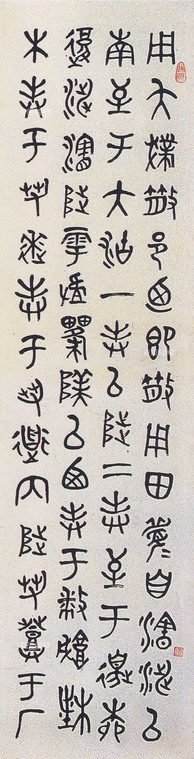 用夨散邑迺即散用田眉自瀗涉以
南至于大沽一封以陟二封至于邊柳
復涉瀗陟雩以西封于播城楮
木封于芻逨封于芻道内陟芻登于厂